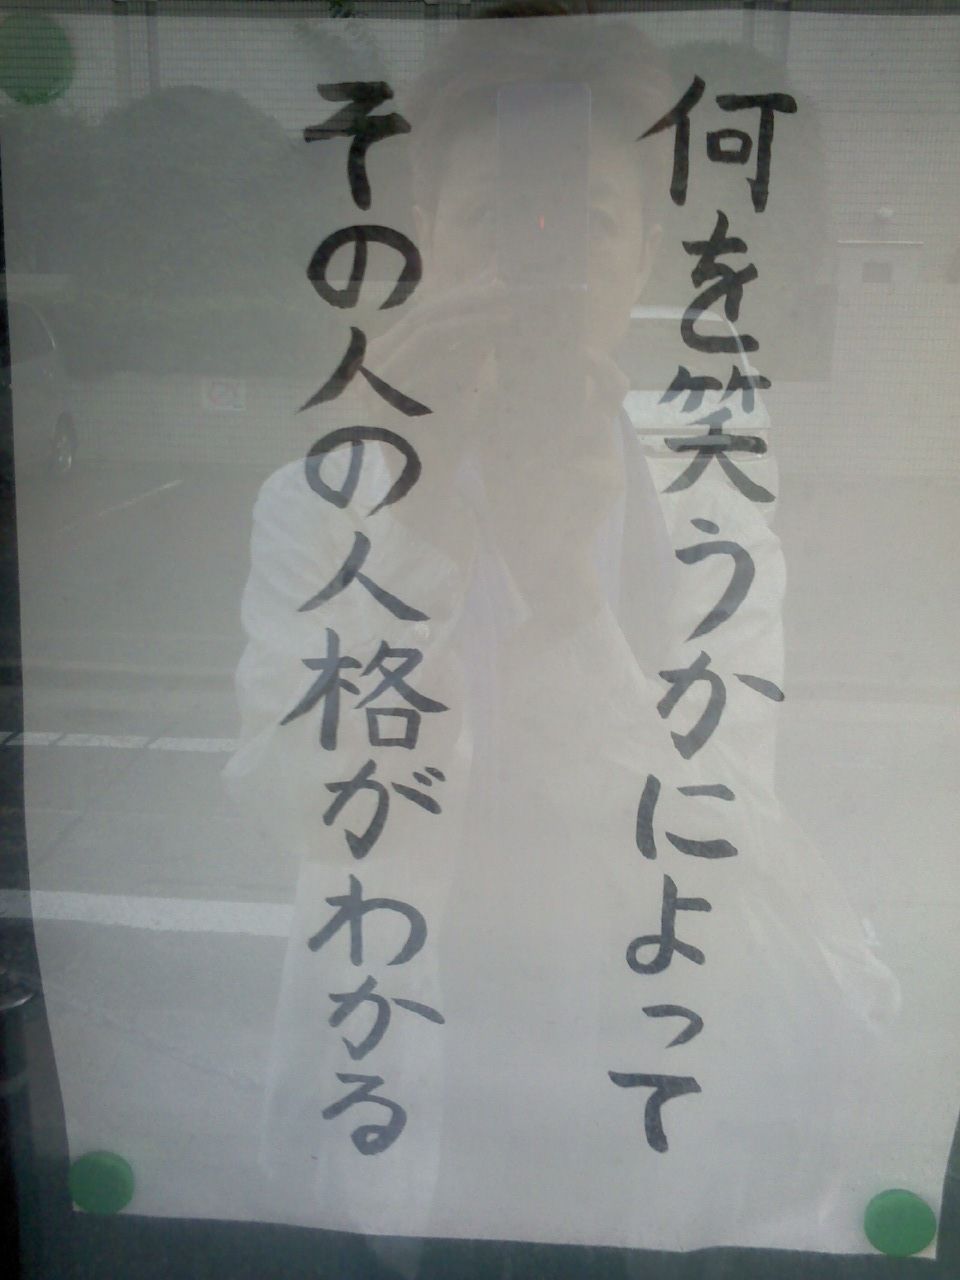 何を笑うかによって
その人の人格がわかる